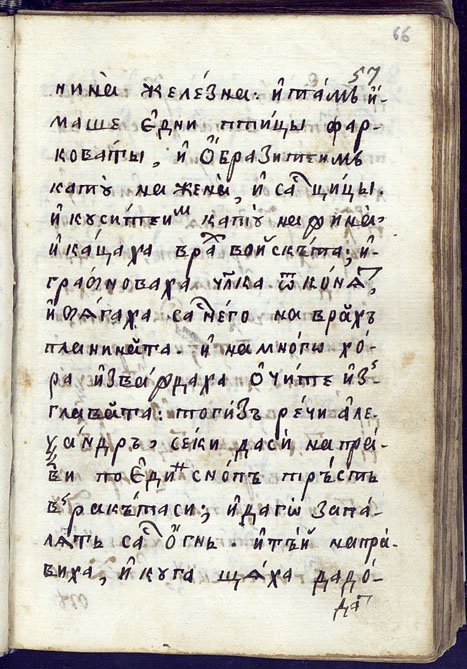 66
57
нина̀ желе́зна. и҆та́мь и҆-
маше є҆дни птицы фар-
ковати, и҆ Ѻбразитеимь
катꙋ на жена̀, и҆ саⷭ҇ щицы.
и҆ кꙋситеиⷨ катꙋ на финаꙵ
и҆каца́ха врⷯа войскѣта; и҆
гра́мноваха чл҃ка ѿ ко́нѧ,
и҆ тѧгаха са не́го на врахъ
планина́та. и҆ на мно́гѡ хо́-
ра и҆зва́ждаха Ѻ҆чи́те и҆зⸯ
глава́та: тоги́зъ ре́чи але-
ѯа́ндръ, се́ки да сѝ напра́-
ви по є҆диⷩ снопъ тръсть
вⸯ рⷶкѣта си; и҆ да гѡ̀ запа́-
лѧтъ саⷭ҇ Ѻ҆гнь. и҆ тъ́й напра́-
виха, и҆ кꙋга щѧ́ха да до́-
даⷣ